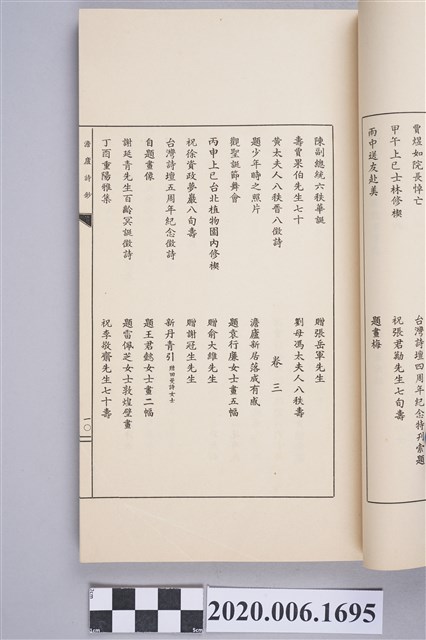 賈煜如院長悼亡
甲午上巳士林修禊
雨中送友赴美
台灣詩壇四周年紀念特刊索題
祝張君勱先生七旬壽
題畫梅
陳副總統六秩華誕
壽賈果伯先生七十
黃太夫人八秩晉八徵詩
題少年時之照片
觀聖誕節舞會
丙申上巳台北植物園內修禊
祝徐資政夢巖八旬壽
台灣詩壇五周年紀念徵詩
自題畫像
謝延青先生百齡冥誕徵詩
丁酉重陽雅集
贈張岳軍先生
劉母馮太夫人八秩壽
卷三
澹廬新居落成有感
題袁行廉女士畫五幅
贈俞大維先生
贈謝冠生先生
新丹青引
題王君懿女士畫二幅
題雷佩芝女士敦煌壁畫
祝李敬齋先生七十壽
澹廬詩鈔
一〇
5cm
5cm
2020.006.1695